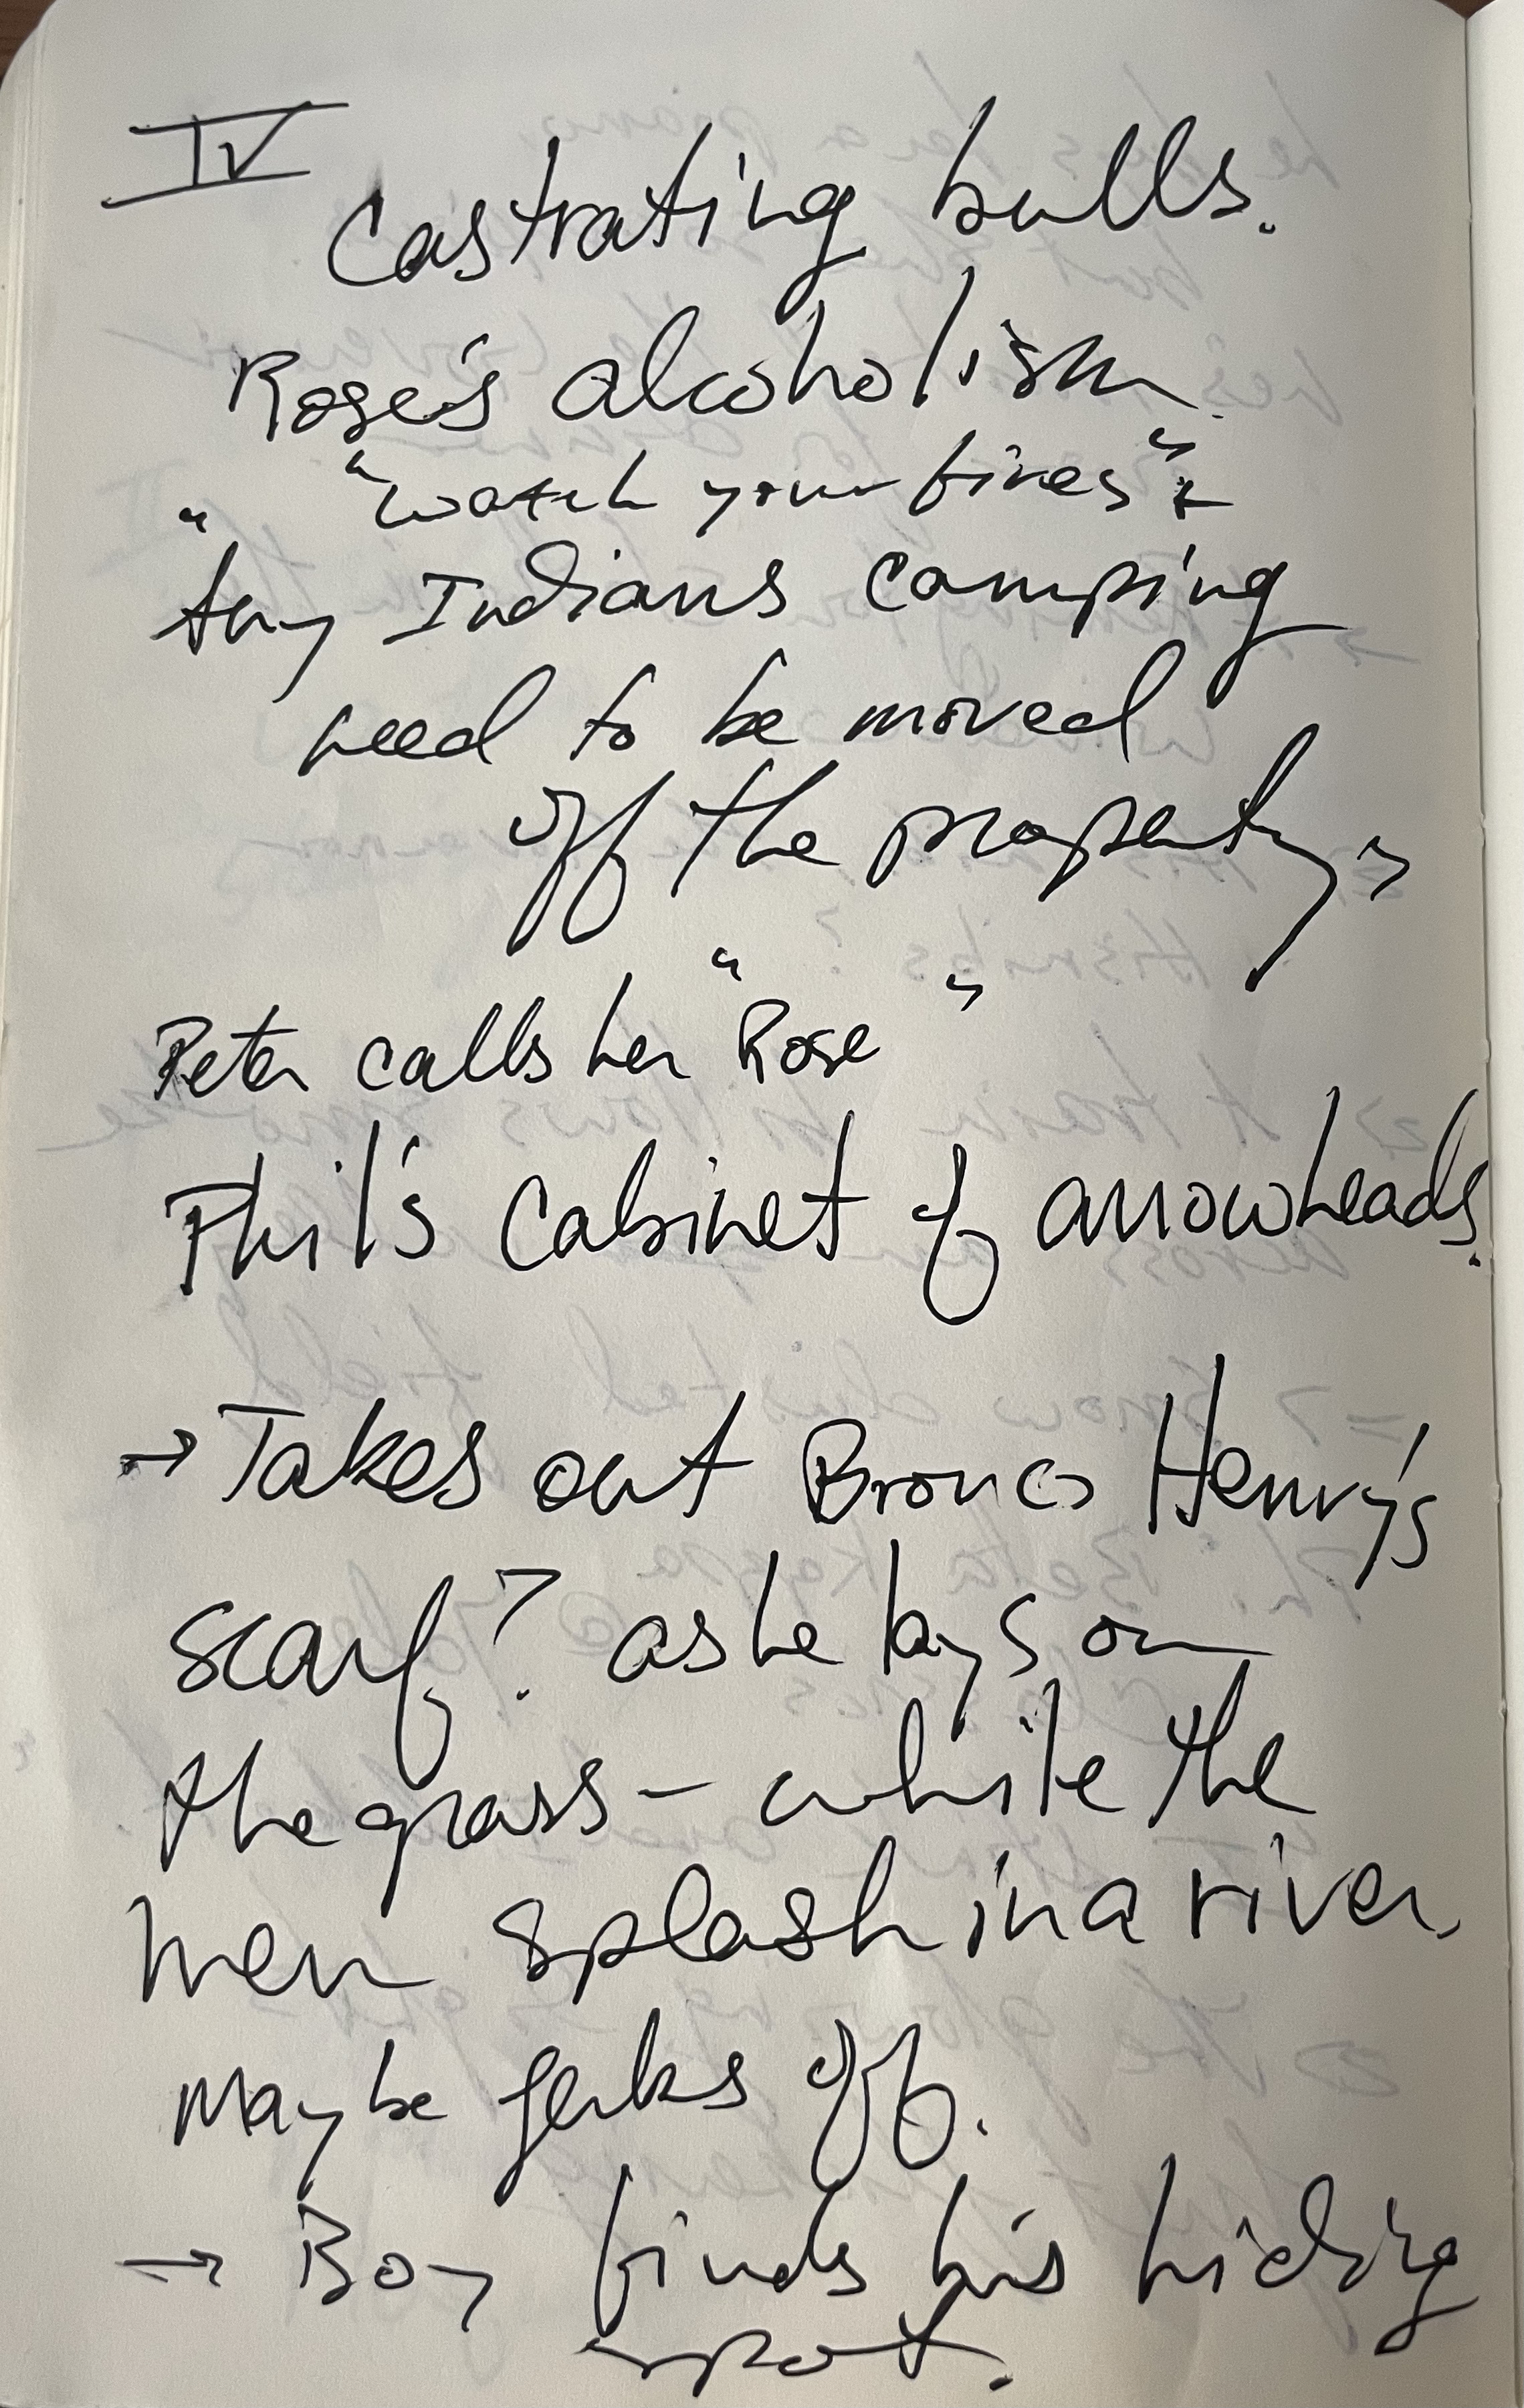 IV
Castrating bulls.
Rose's alcoholism.
"Watch your fires" &
"Any Indians camping
need to be moved
off the property"
Peter calls her "Rose"
Phil's cabinet of arrowheads.
→ Takes out Bronco Henry's
scarf? as he lays on
the grass – while the
men splash in a river.
Maybe jerks off.
→ Boy finds his hiding
spot.